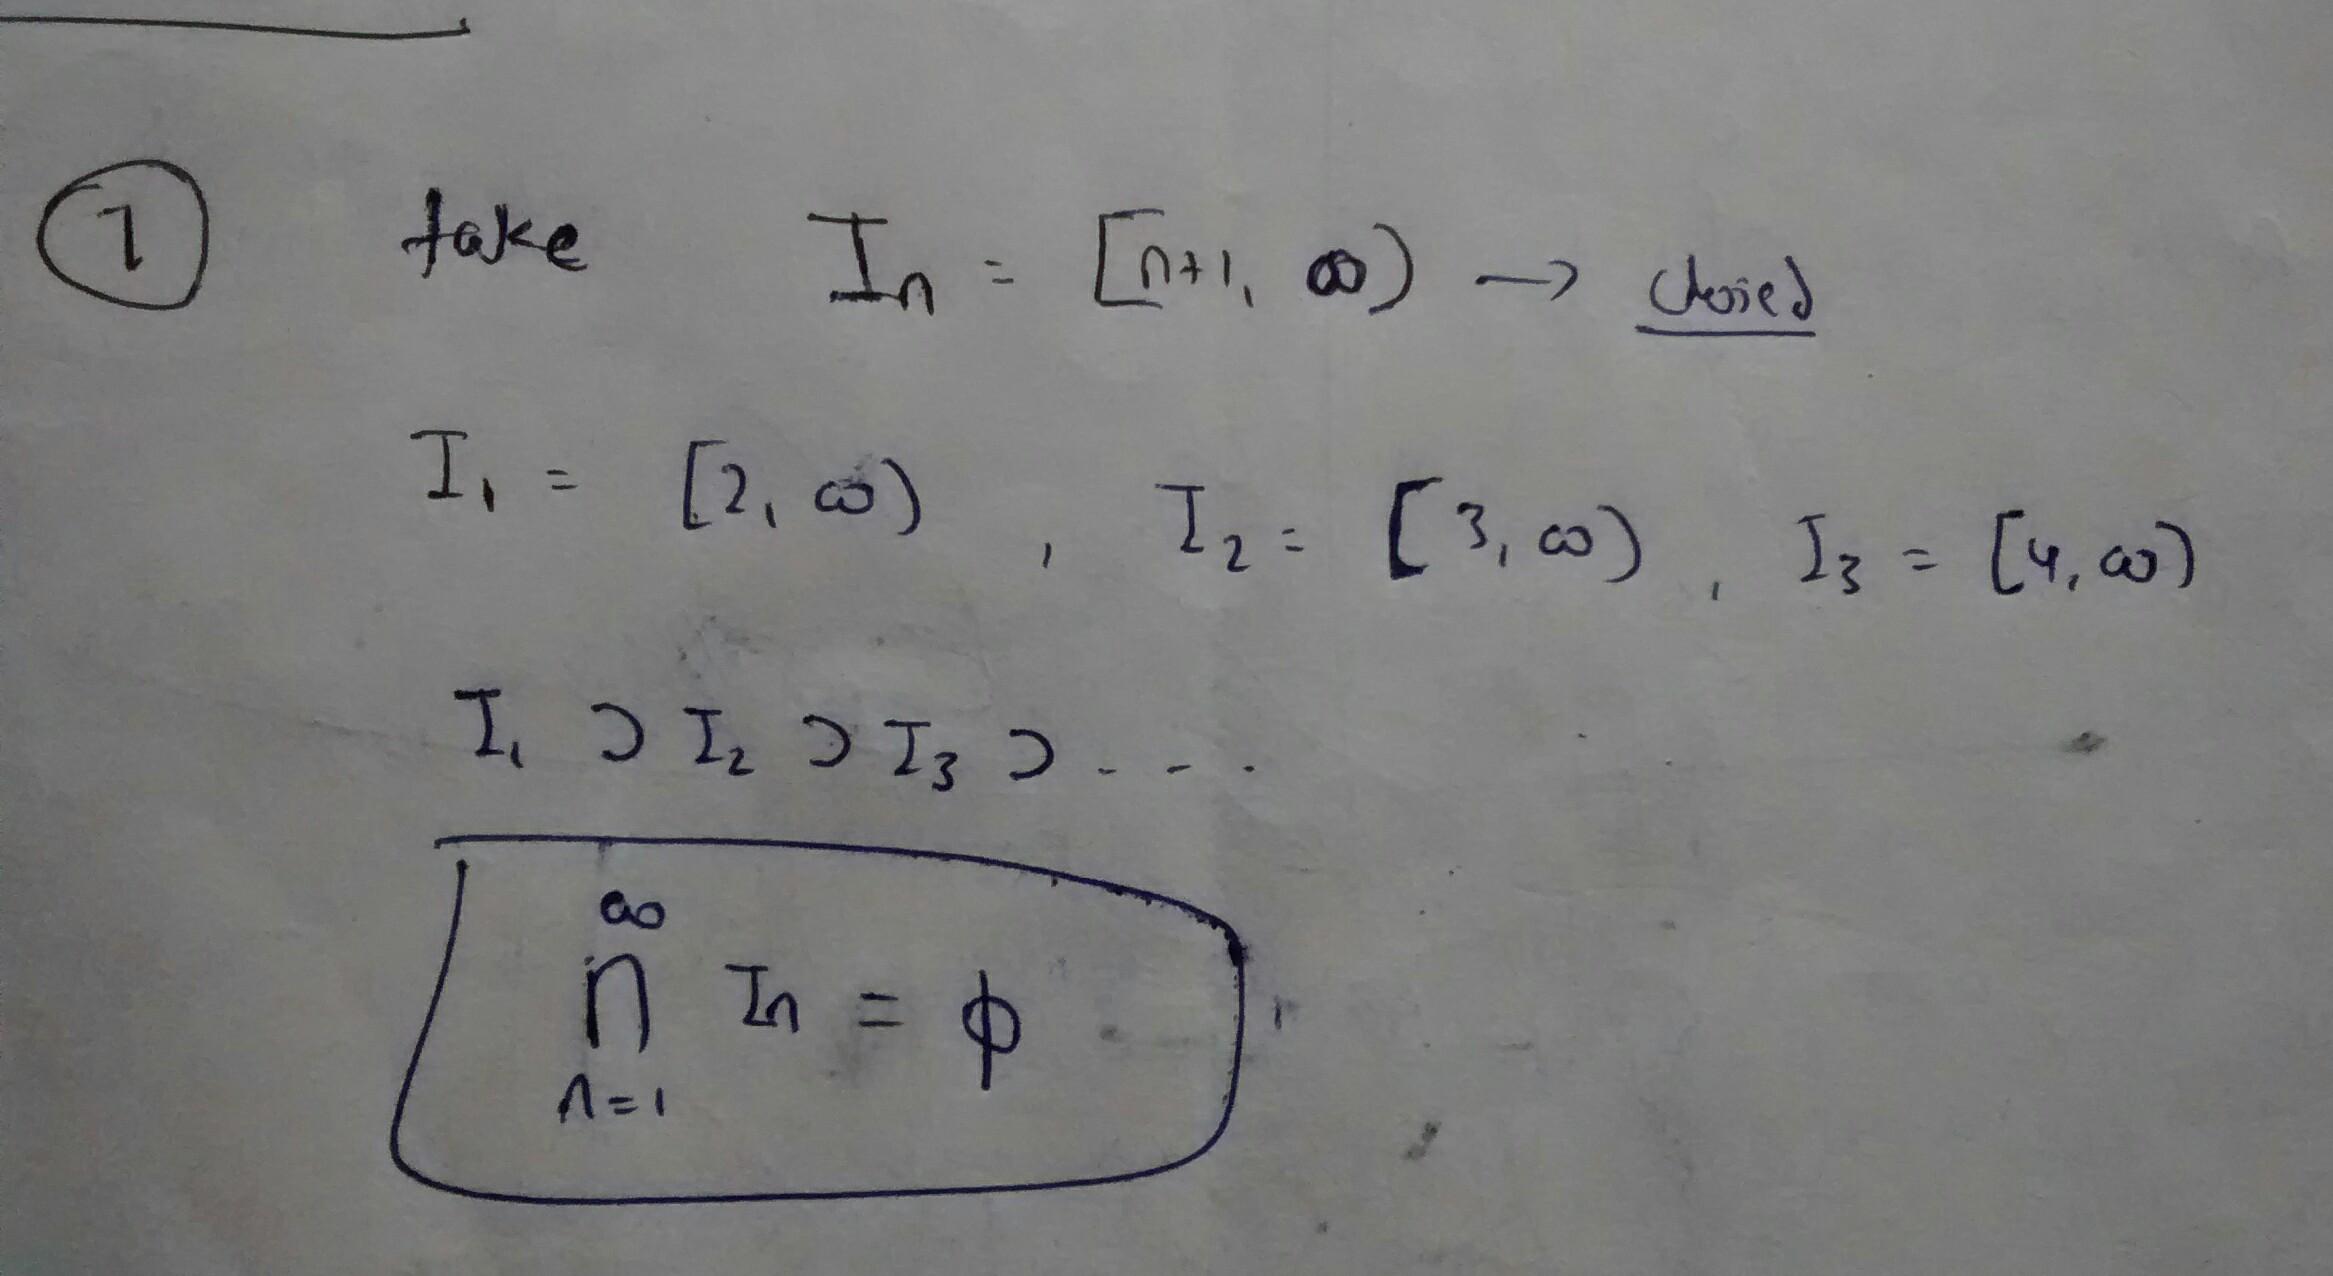 ① take Iₙ = [n+1, ∞) → closed
I₁ = [2, ∞) , I₂ = [3, ∞) , I₃ = [4, ∞)
I₁ ⊃ I₂ ⊃ I₃ ⊃ - - - .
∞
∩ Iₙ = ϕ
n=1